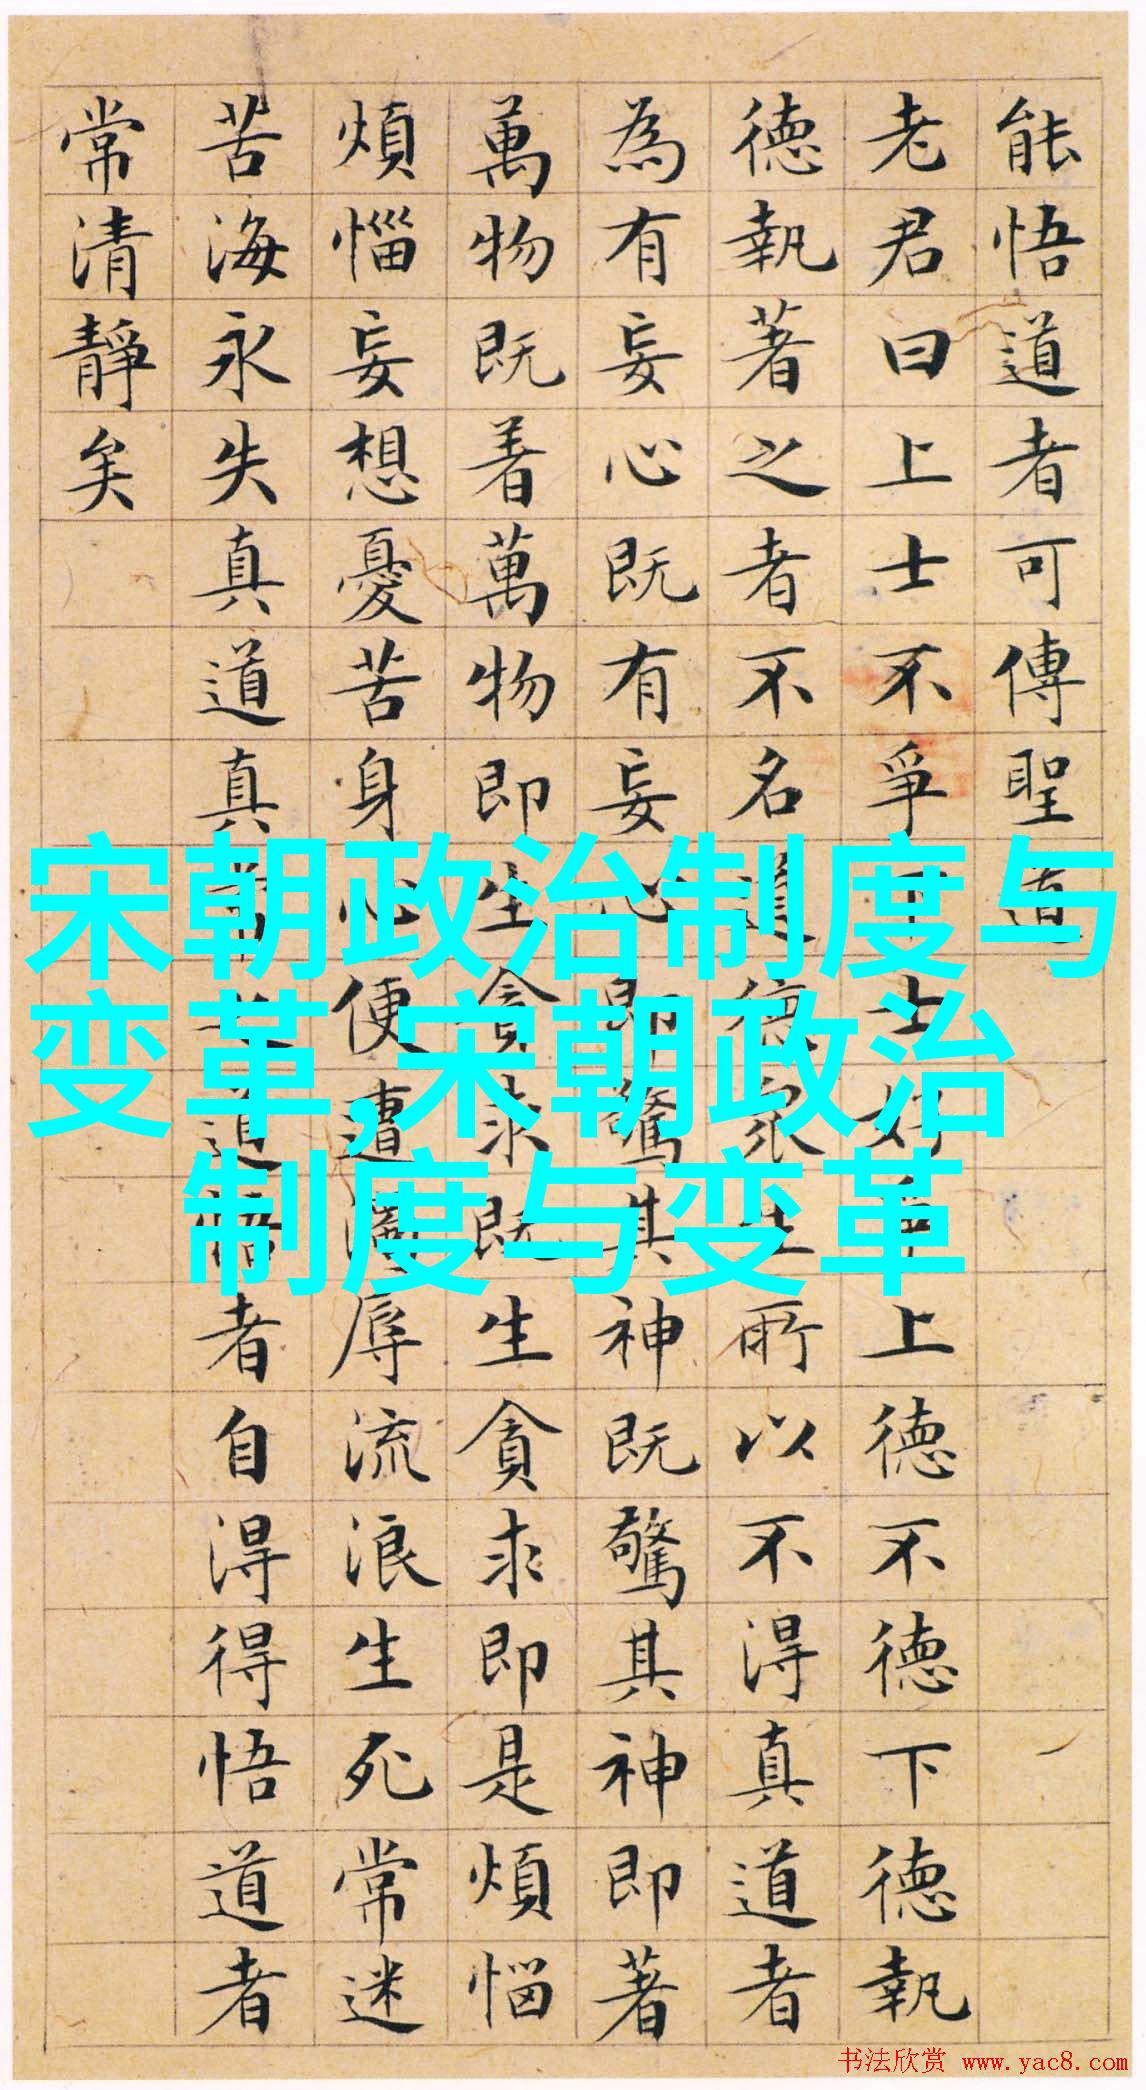 能悟道者可傳聖道
老君曰上士不爭下士好爭上德不德下德執
德執著之者不名道德眾生所以不得真道者
為有妄心既有妄心即驚其神既驚其神即著
萬物既着萬物即生貪求既生貪求即是煩惱
煩惱妄想憂苦身心便遭濁辱流浪生死常迷
苦海永失真道真常之道悟者自得得悟道者
常清靜矣
宋朝政治制度与
变革,宋朝政治
制度与变革
书法欣赏 www.yac8.com